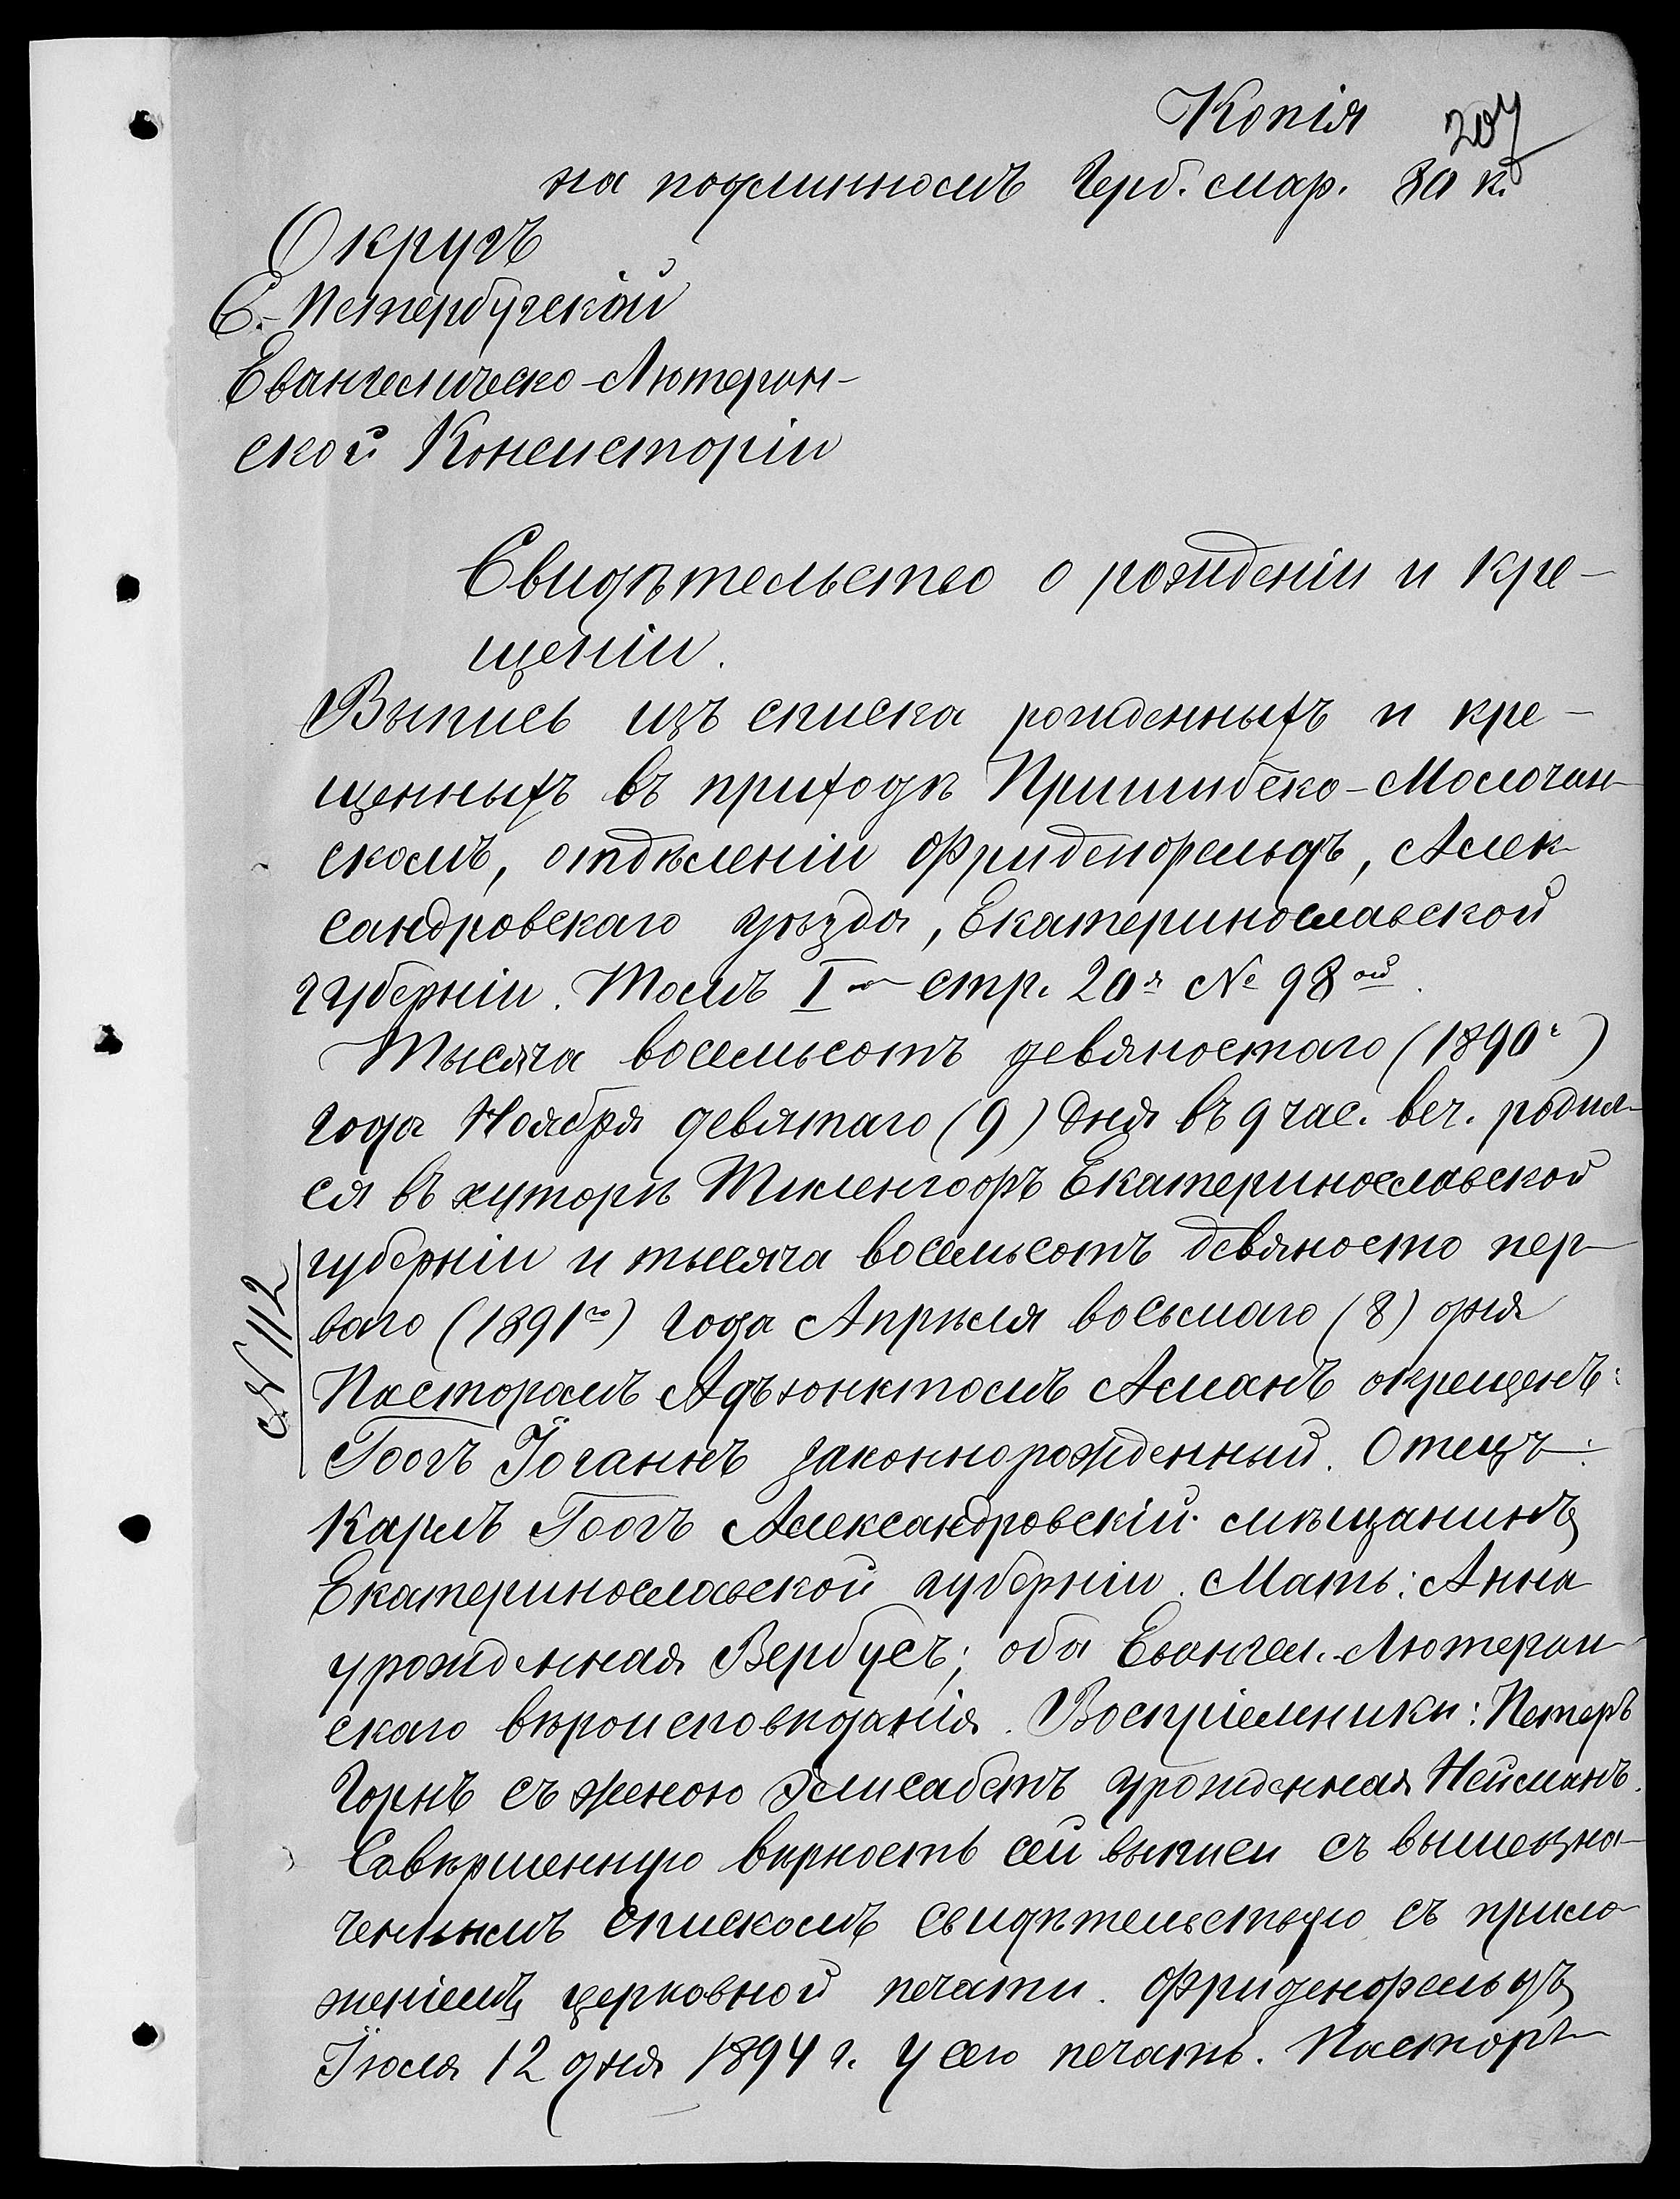 Копія
207
на подлинномъ Герб. мар. 80 к.
Округъ
С.-Петербугской
Евангелическо-Лютеран-
ской Консисторіи
Свидѣтельство о рожденіи и кре-
щеніи.
Выпись изъ списка рожденныхъ и кре-
щенныхъ въ приходѣ Пришибско-Молочан-
скомъ, отдѣленіи Фриденфельдъ, Алек-
сандровскаго уѣзда, Екатеринославской
губерніи. Томъ I стр. 20я № 98ой.
Тысяча восемьсотъ девяностаго (1890г)
года Ноября девятаго (9) дня въ 9 час. веч. родил-
ся въ хуторѣ Тиленгофъ Екатеринославской
губерніи и тысяча восемьсотъ девяносто пер-
ваго (1891го) года Апрѣля восьмаго (8) дня
Пасторомъ Адъюнктомъ Асманъ окрещенъ:
№ 112
Гоогъ Іоганнъ законнорожденный. Отецъ:
Карлъ Гоогъ Александровскій мѣщанинъ
Екатеринославской губерніи. Мать: Анна
урожденная Вербусъ; оба Евангел.-Лютеран-
скаго вѣроисповѣданія. Воспріемники: Петеръ
Горнъ съ женою Элисабетъ урожденная Нейманъ.
Совершенную вѣрность сей выписи съ вышеозна-
ченнымъ спискомъ свидѣтельствую съ прило-
женіемъ церковной печати. Фриденфельдъ
Іюля 12 дня 1894 г. У сего печать. Пасторъ